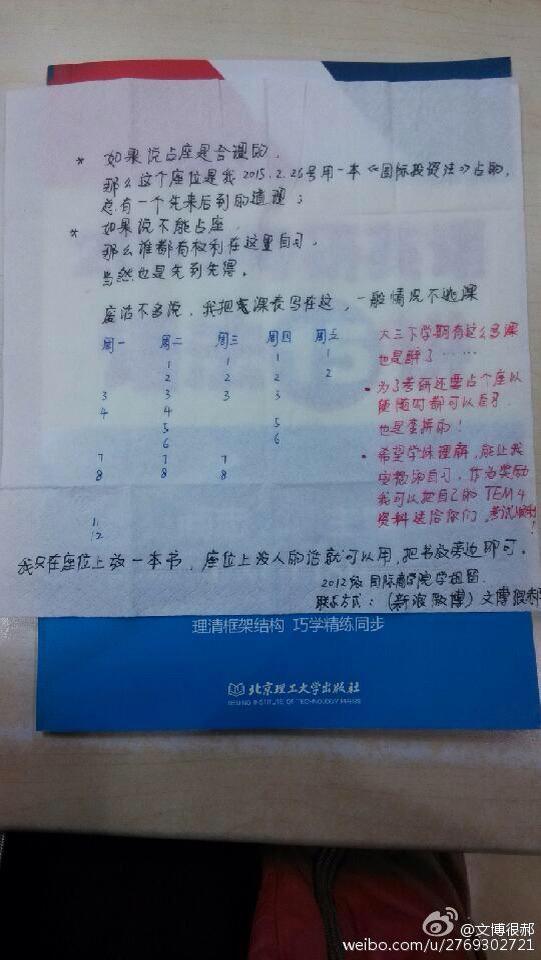 * 如果说占座是合理的,
那么这个座位是我 2015.2.26号用一本《国际投资法》占的,
总有一个先来后到的道理;
* 如果说不能占座,
那么谁都有权利在这里自习,
当然也是先到先得。
废话不多说,我把课表写在这,一般情况不逃课
周一 周二 周三 周四 周五
1 1 1 1
2 2 2 2
3 3 3 3
4 4
5 5
6 6
7 7 7
8 8 8
11
12
大三下学期有这么多课
也是醉了……
• 为了考研还要占个座以
随时都可以自习
也是蛮拼的!
• 希望学妹理解,能让我
安静的自习,作为奖励
我可以把自己的 TEM4
资料送给你们,考试顺利!
我只在座位上放一本书,座位上没人的话就可以用,把书放旁边即可。
2012级 国际商学院学姐留
联系方式:(新浪微博)文博很郝
理清框架结构 巧学精练同步
北京理工大学出版社
BEIJING INSTITUTE OF TECHNOLOGY PRESS
@文博很郝
weibo.com/u/2769302721